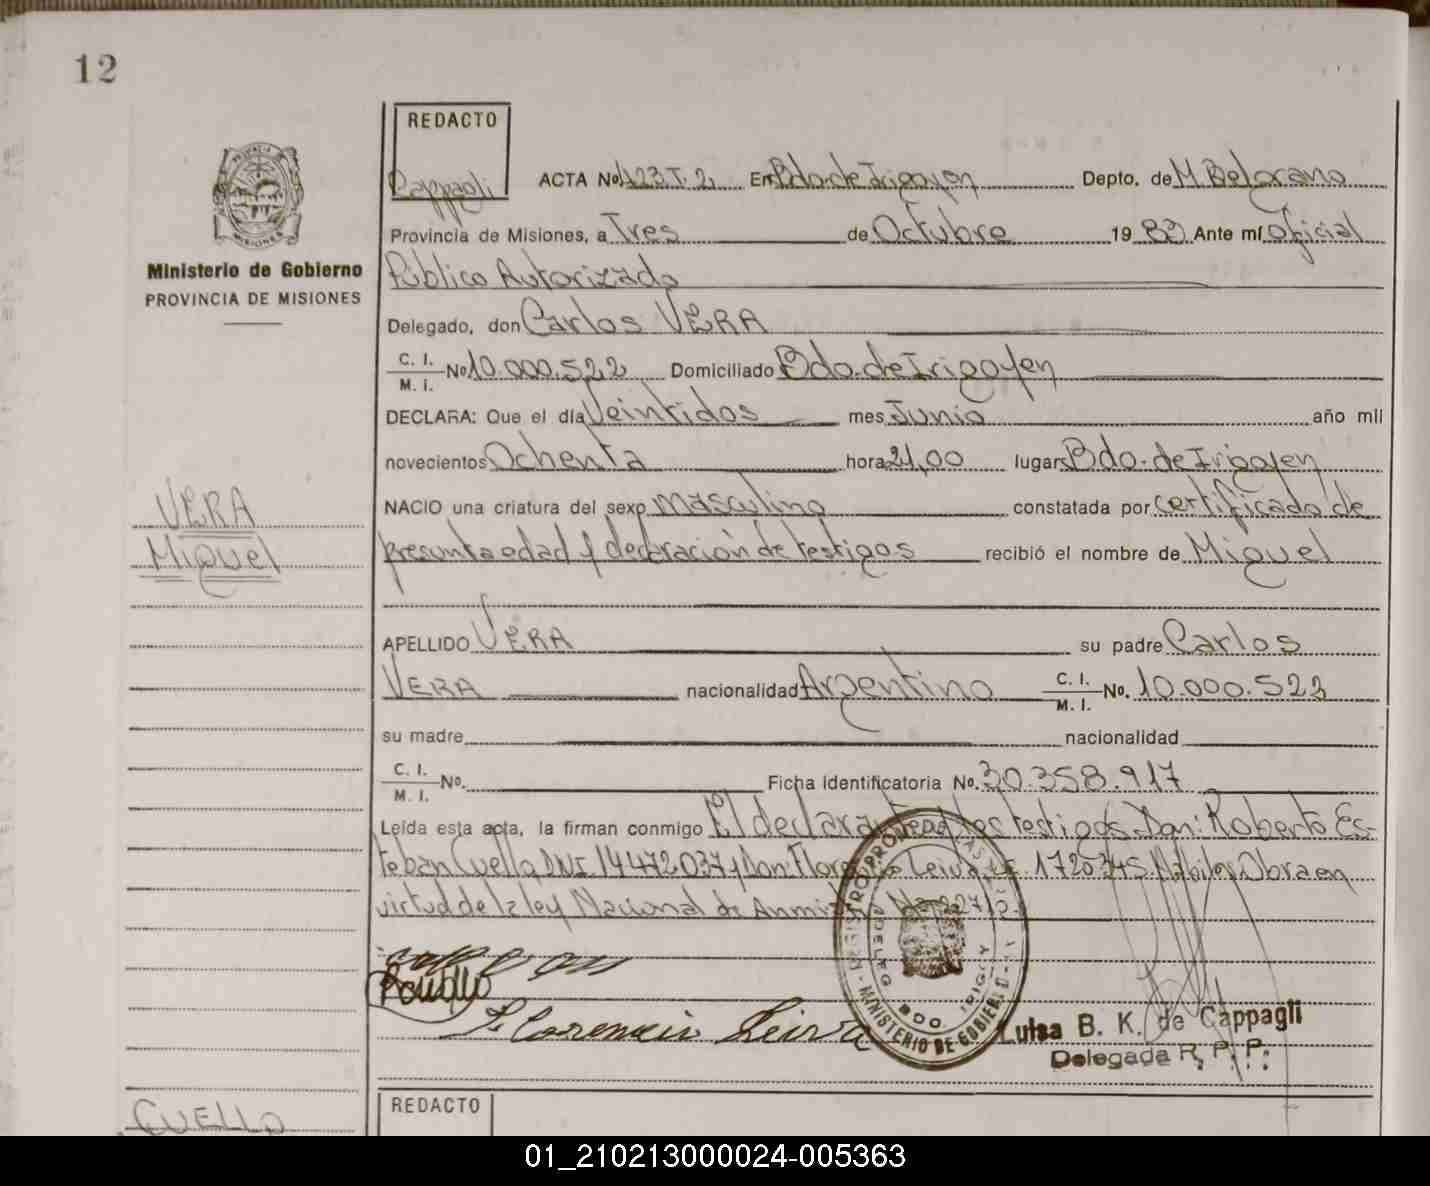 12
REDACTO
Cappagli
ACTA No 123.T.2. En Bdo. de Irigoyen Depto. de M. Belgrano
Provincia de Misiones, a Tres de Octubre 1983 Ante mí Oficial
Público Autorizado
Ministerio de Gobierno
PROVINCIA DE MISIONES
Delegado, don Carlos VERA
C. I.
M. I. No 10.000.522 Domiciliado Bdo. de Irigoyen
DECLARA: Que el día Veintidos mes Junio año mil
novecientos Ochenta hora 21,00 lugar Bdo. de Irigoyen
NACIO una criatura del sexo masculino constatada por certificado de
presunta edad y declaración de testigos recibió el nombre de Miguel
VERA
Miguel
APELLIDO VERA su padre Carlos
VERA nacionalidad Argentino C. I.
M. I. No. 10.000.522
su madre nacionalidad
C. I.
M. I. No. Ficha Identificatoria No. 30.358.917
Leída esta acta, la firman conmigo El declarante y los testigos Don: Roberto Es-
teban Cuello DNI 14.472.037 y Don: Florencio Leiva 1720345 Hábiles Obra en
virtud de la ley Nacional de
Florencio Leiva
MINISTERIO DE GOBIERNO
BDO. IRIGOY
Luisa B. K. de Cappagli
Delegada R. P. P.
REDACTO
CUELLO
01_210213000024-005363